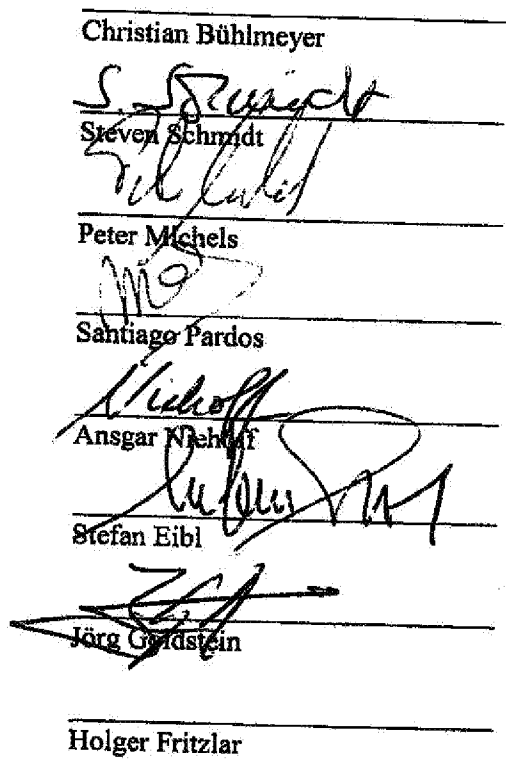 Christian Bühlmeyer
S. Schmidt
Steven Schmidt
Peter Michels
Santiago Pardos
Niehoff
Ansgar Niehoff
Stefan Eibl
Jörg Goldstein
Holger Fritzlar